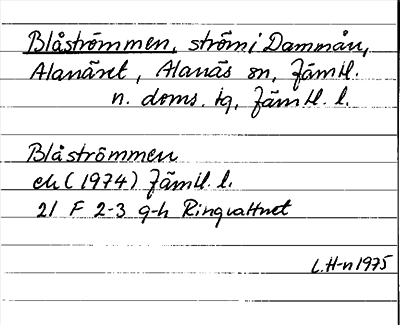 Blåströmmen, ström i Dammån,
Alanäset, Alanäs sn, Jämtl.
n. doms. tg, Jämtl. l.
Blåströmmen
ek (1974) Jämtl. l.
21 F 2-3 g-h Ringvattnet
L.H-n 1975